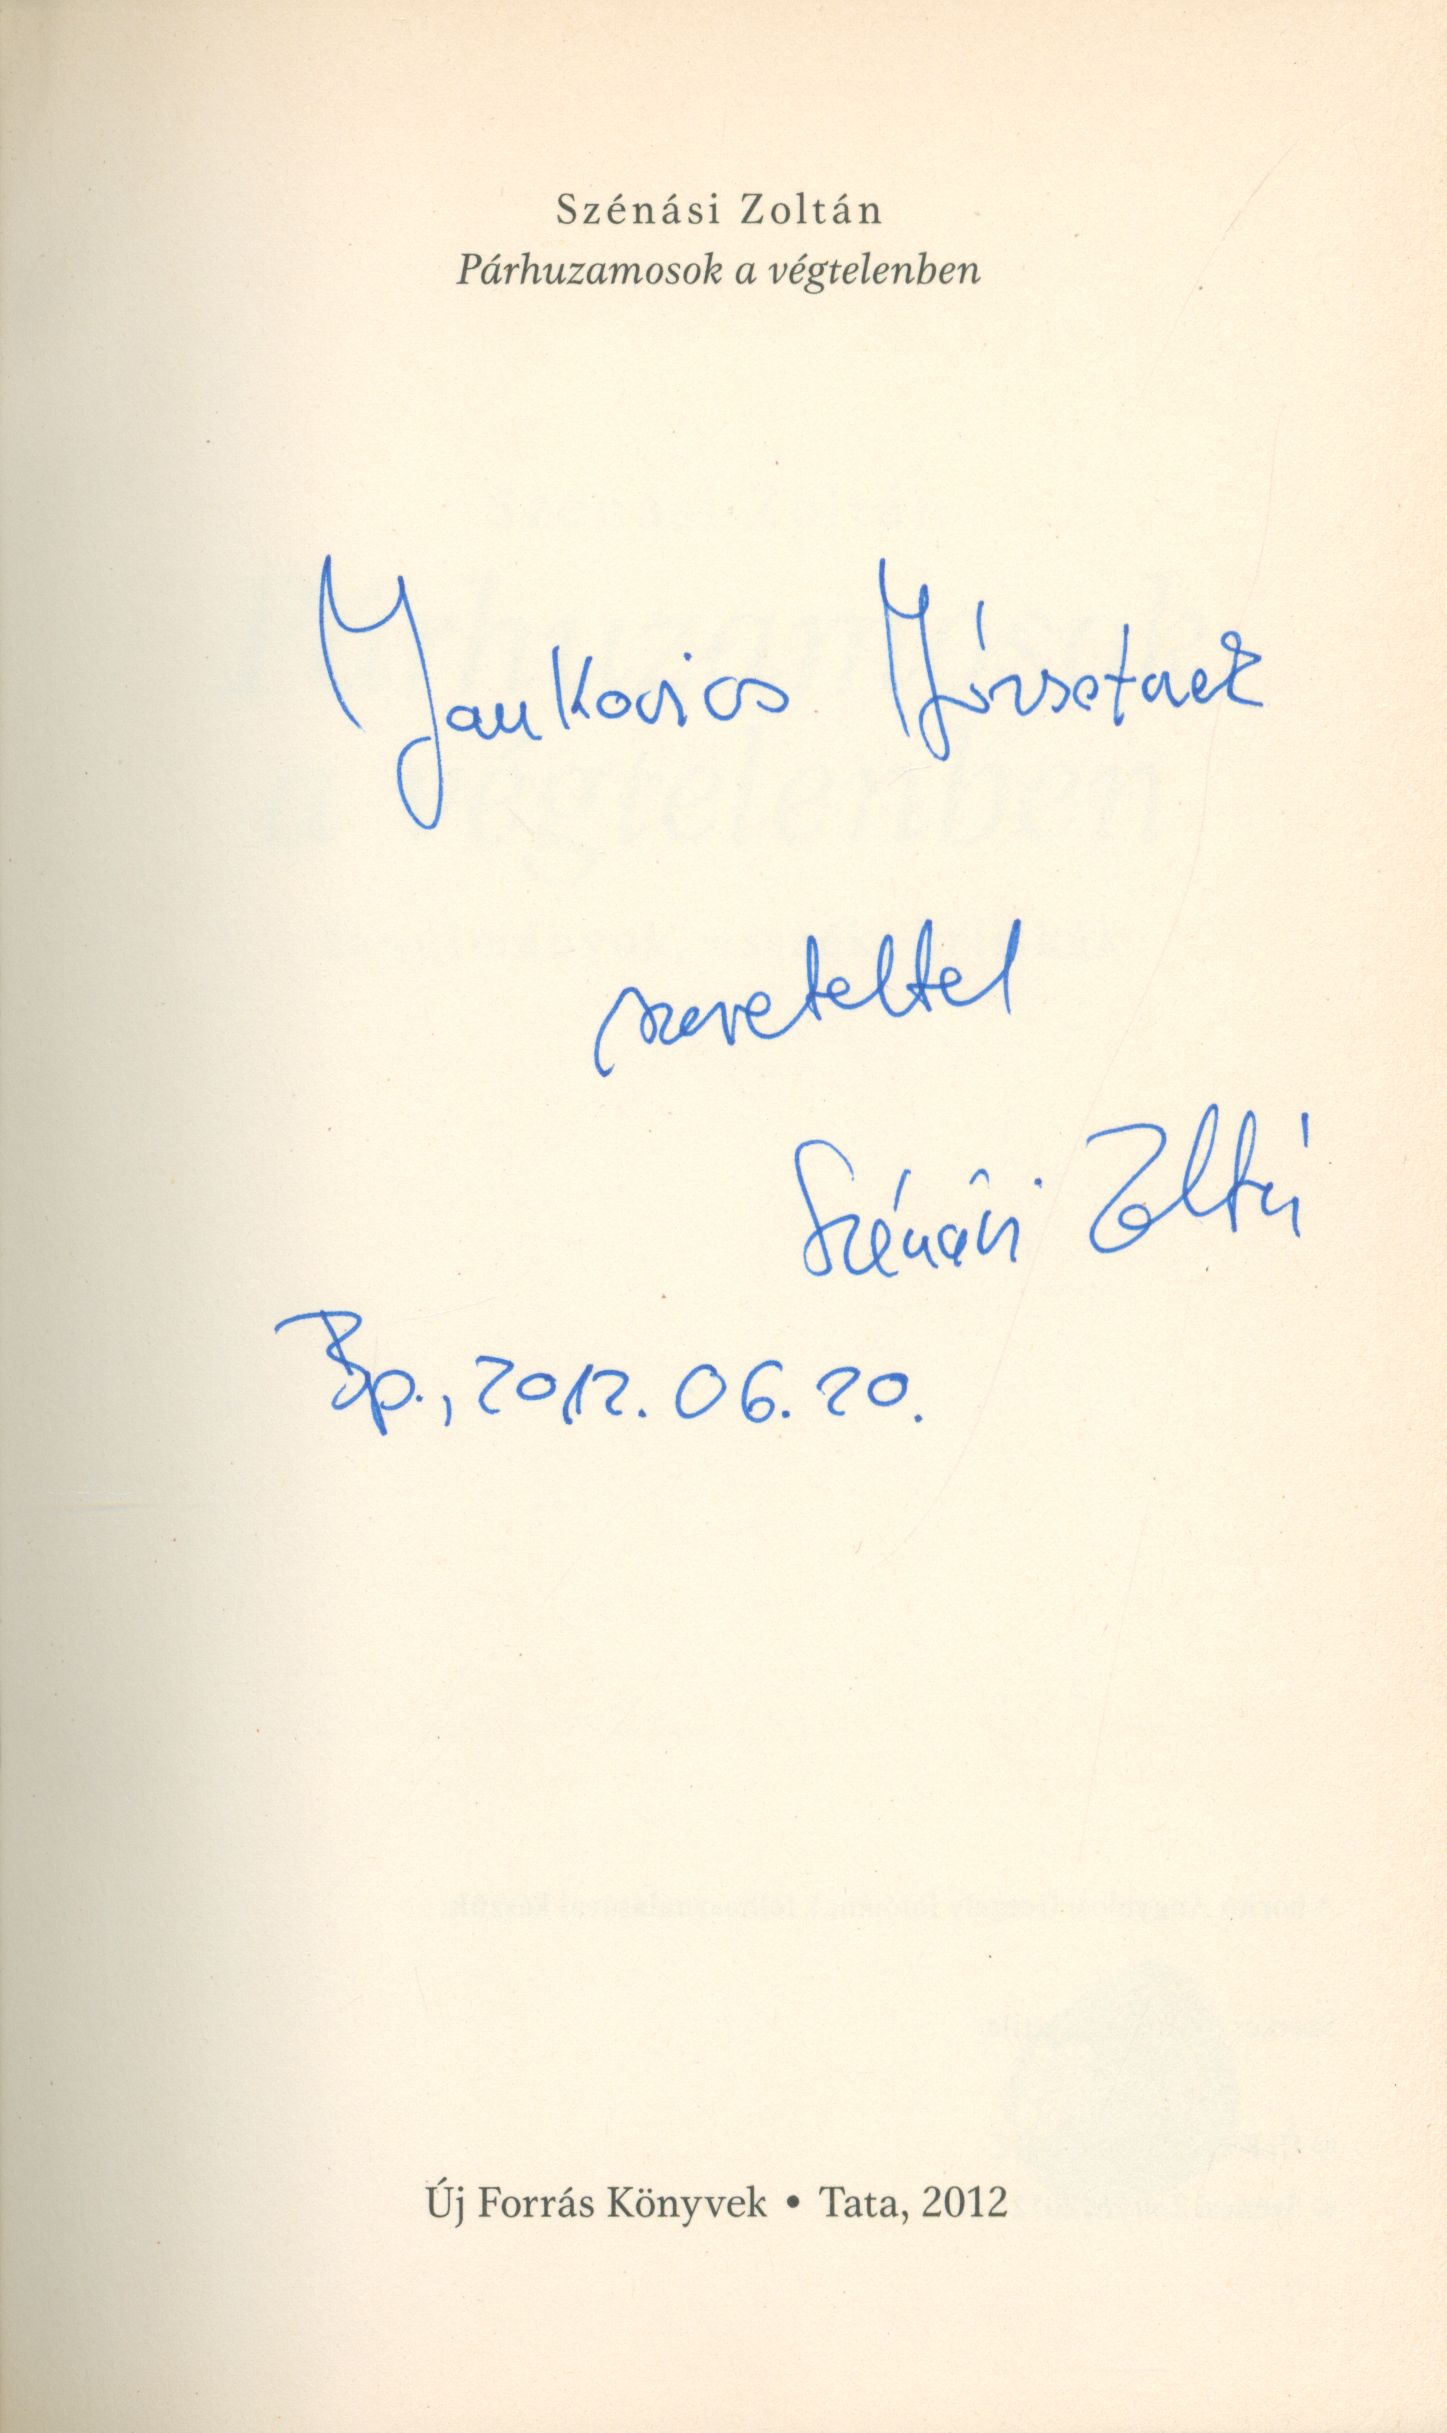 Szénási Zoltán
Párhuzamosok a végtelenben
Jankovics Józsefnek
szeretettel
Szénási Zoltán
Bp., 2012. 06. 20.
Új Forrás Könyvek • Tata, 2012